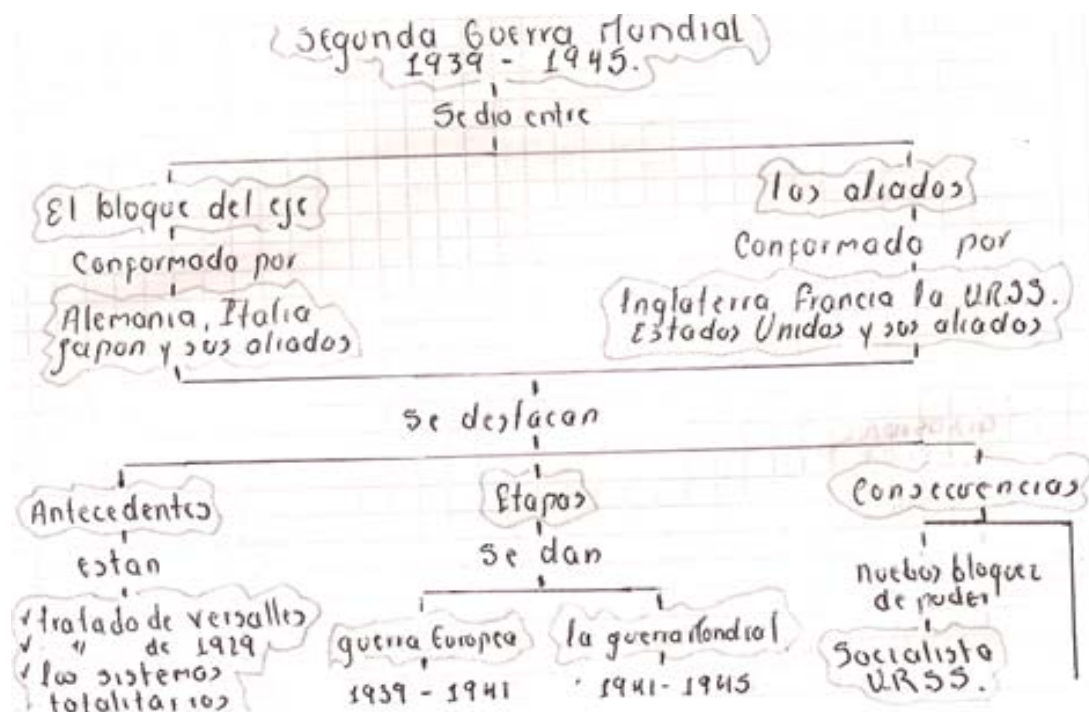 Segunda Guerra Mundial
1939 - 1945.
Se dio entre
El bloque del eje
Conformado por
Alemania, Italia
Japon y sus aliados
los aliados
Conformado por
Inglaterra, Francia la URSS.
Estados Unidos y sus aliados
Se destacan
Antecedentes
estan
✓ tratado de versalles
✓ " de 1929
✓ los sistemas
totalitarios
Etapas
Se dan
guerra Europea
1939 - 1941
la guerra Mondial
1941 - 1945
Consecuencias
nuebos bloquez
de poder
Socialista
URSS.